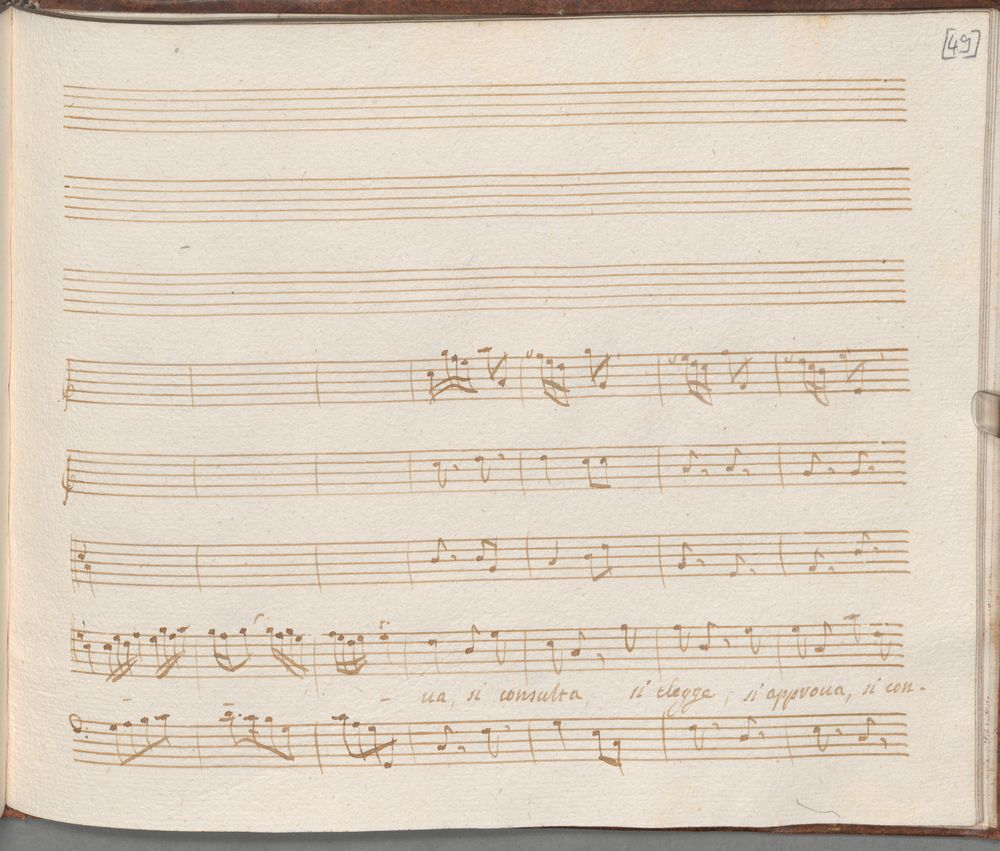 [49]
- - ua, si consulta, si elegge, si approua, si con-